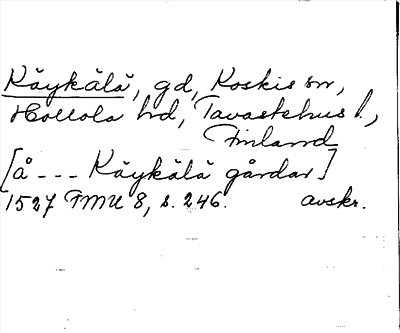 Käykälä, gd, Koskis sn,
Hollola hd, Tavastehus l.,
Finland
[å --- Käykälä gårdar]
1527 FMU 8, s. 246. avskr.